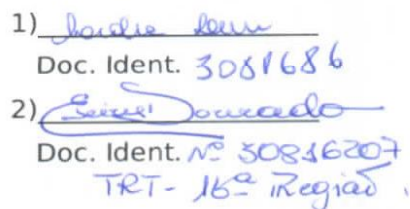 1)
Doc. Ident. 3081686
2) Dourado
Doc. Ident. Nº 30816207
TRT - 16ª Região.